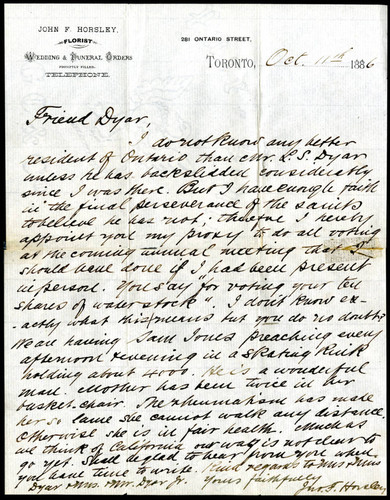 JOHN F. HORSLEY,
FLORIST
WEDDING & FUNERAL ORDERS
PROMPTLY FILLED.
TELEPHONE.
281 ONTARIO STREET,
TORONTO, Oct. 11th 1886
Friend Dyar,
I do not know any better
resident of Ontario than Mr. L. S. Dyar
unless he has backslidded considerably
since I was there. But I have enough faith
in the final perseverance of the saints
to believe he has not, therefore I hereby
appoint you my proxy to do all voting
at the coming annual meeting that I
should have done if I had been present
in person. You say for voting your ten
shares of water stock". I don't know ex-
actly what this means but you do no doubt.
We are having Sam Jones preaching every
afternoon & evening in a skating rink
holding about 4000. He is a wonderful
man. Mother has been twice in her
basket chair. The rheumatism has made
her so lame she cannot walk any distance.
Otherwise she is in fair health. Much as
we think of California our way is not clear to
go yet. Shall be glad to hear from you when
you have time to write. Kind regards to Mrs
Dyar & Mr. Dyar Jr. Yours faithfully
Jno. F. Horsley